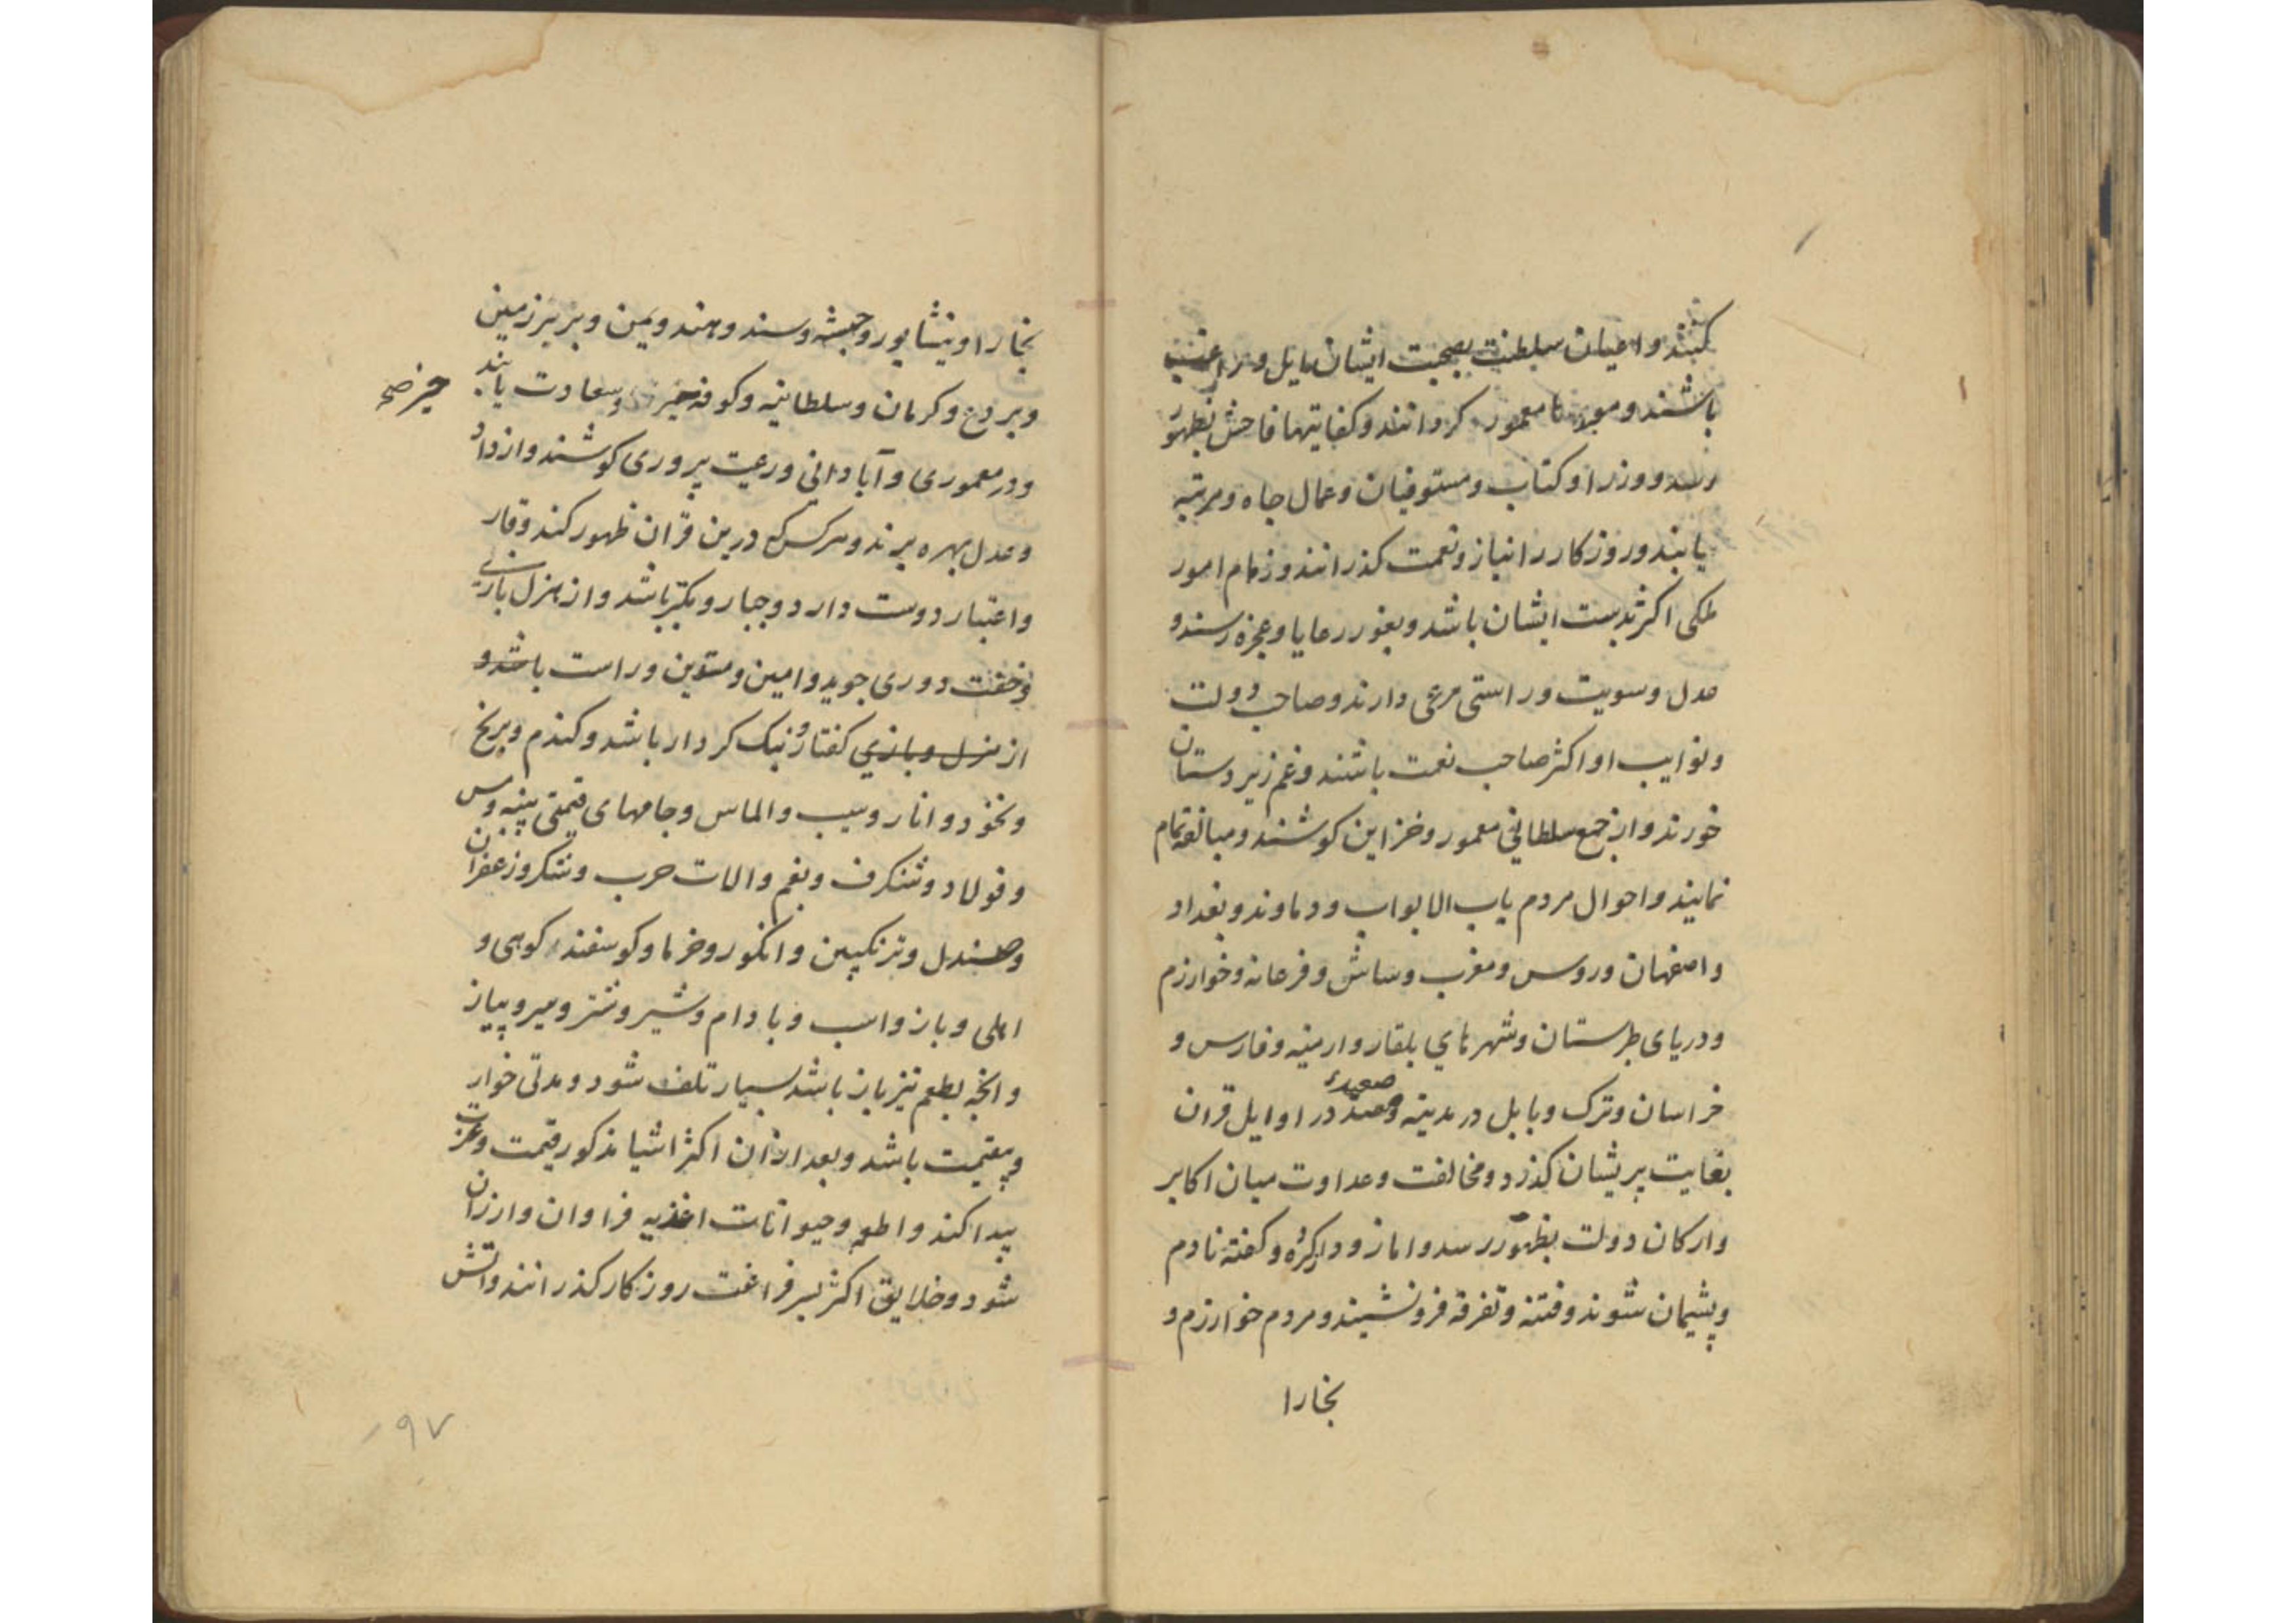 کنند و اعیان سلطنت بصحبت ایشان مایل و راغب
باشند و معمور کردانند و کفایتها فاحش بظهور
رسد و وزرا و کتاب و مستوفیان و عمال جاه و مرتبه
یابند و روزکار را بناز و نعمت کذرانند و زمام امور
ملکی اکثر بدست ایشان باشد و بغور رعایا و عجزه رسند و
عدل و سویت و راستی مرعی دارند و صاحب دولت
و نوایب او اکثر صاحب نعمت باشند و غم زیردستان
خورند و از جمع سلطانی معمور و خزاین کوشند و مبالغه تمام
نمایند و احوال مردم باب الابواب و دماوند و بغداد
و اصفهان و روس و مغرب و ساش و فرغانه و خوارزم
و دریای طبرستان و شهرهای بلقار و ارمنیه و فارس و
خراسان و ترک و بابل در مدینه و صعده در اوایل قران
بغایت پریشان کذرد و مخالفت و عداوت میان اکابر
و ارکان دولت بظهور رسد و اما زود از کرده و کفته نادم
و پشیمان شوند و فتنه و تفرقه فرونشیند و مردم خوارزم و
بخارا
بخارا و نیشاپور و حبشه و سند و هند و یمن و بربر زمین
و بردع و کرمان و سلطانیه و کوفه خیر و سعادت یابند
خیر صح
و در معموری و آبادانی و رعیت پروری کوشند و از داد
و عدل بهره برند و هر کس که درین قران ظهور کند وقار
و اعتبار دوست دارد و جبار و بکبر باشد و از هزل بازی
و خفت دوری جوید و امین و متدین و راست باشد و
از هزل و بازی کفتار و نیک کردار باشد و کندم و برنج
و نخود و انار و سیب و الماس و جامهای قیمتی پنبه و مس
و فولاد و شنکرف و بقم و الات حرب و شکر و زعفران
و صندل و ترنکبین و انکور و خرما و کوسفند کوهی و
اهلی و باز و اسب و بادام و شیر و شتر و میر و پیاز
و انچه بطعم تیز باز باشد بسیار تلف شود و مدتی خوار
و بیقیمت باشد و بعد ازان اکثر اشیا مذکور قیمت و عزت
پیدا کند و اطعمه و حیوانات اغذیه فراوان و ارزان
شود و خلایق اکثر بسر فراغت روزکار کذرانند و اتش
۱۹۷